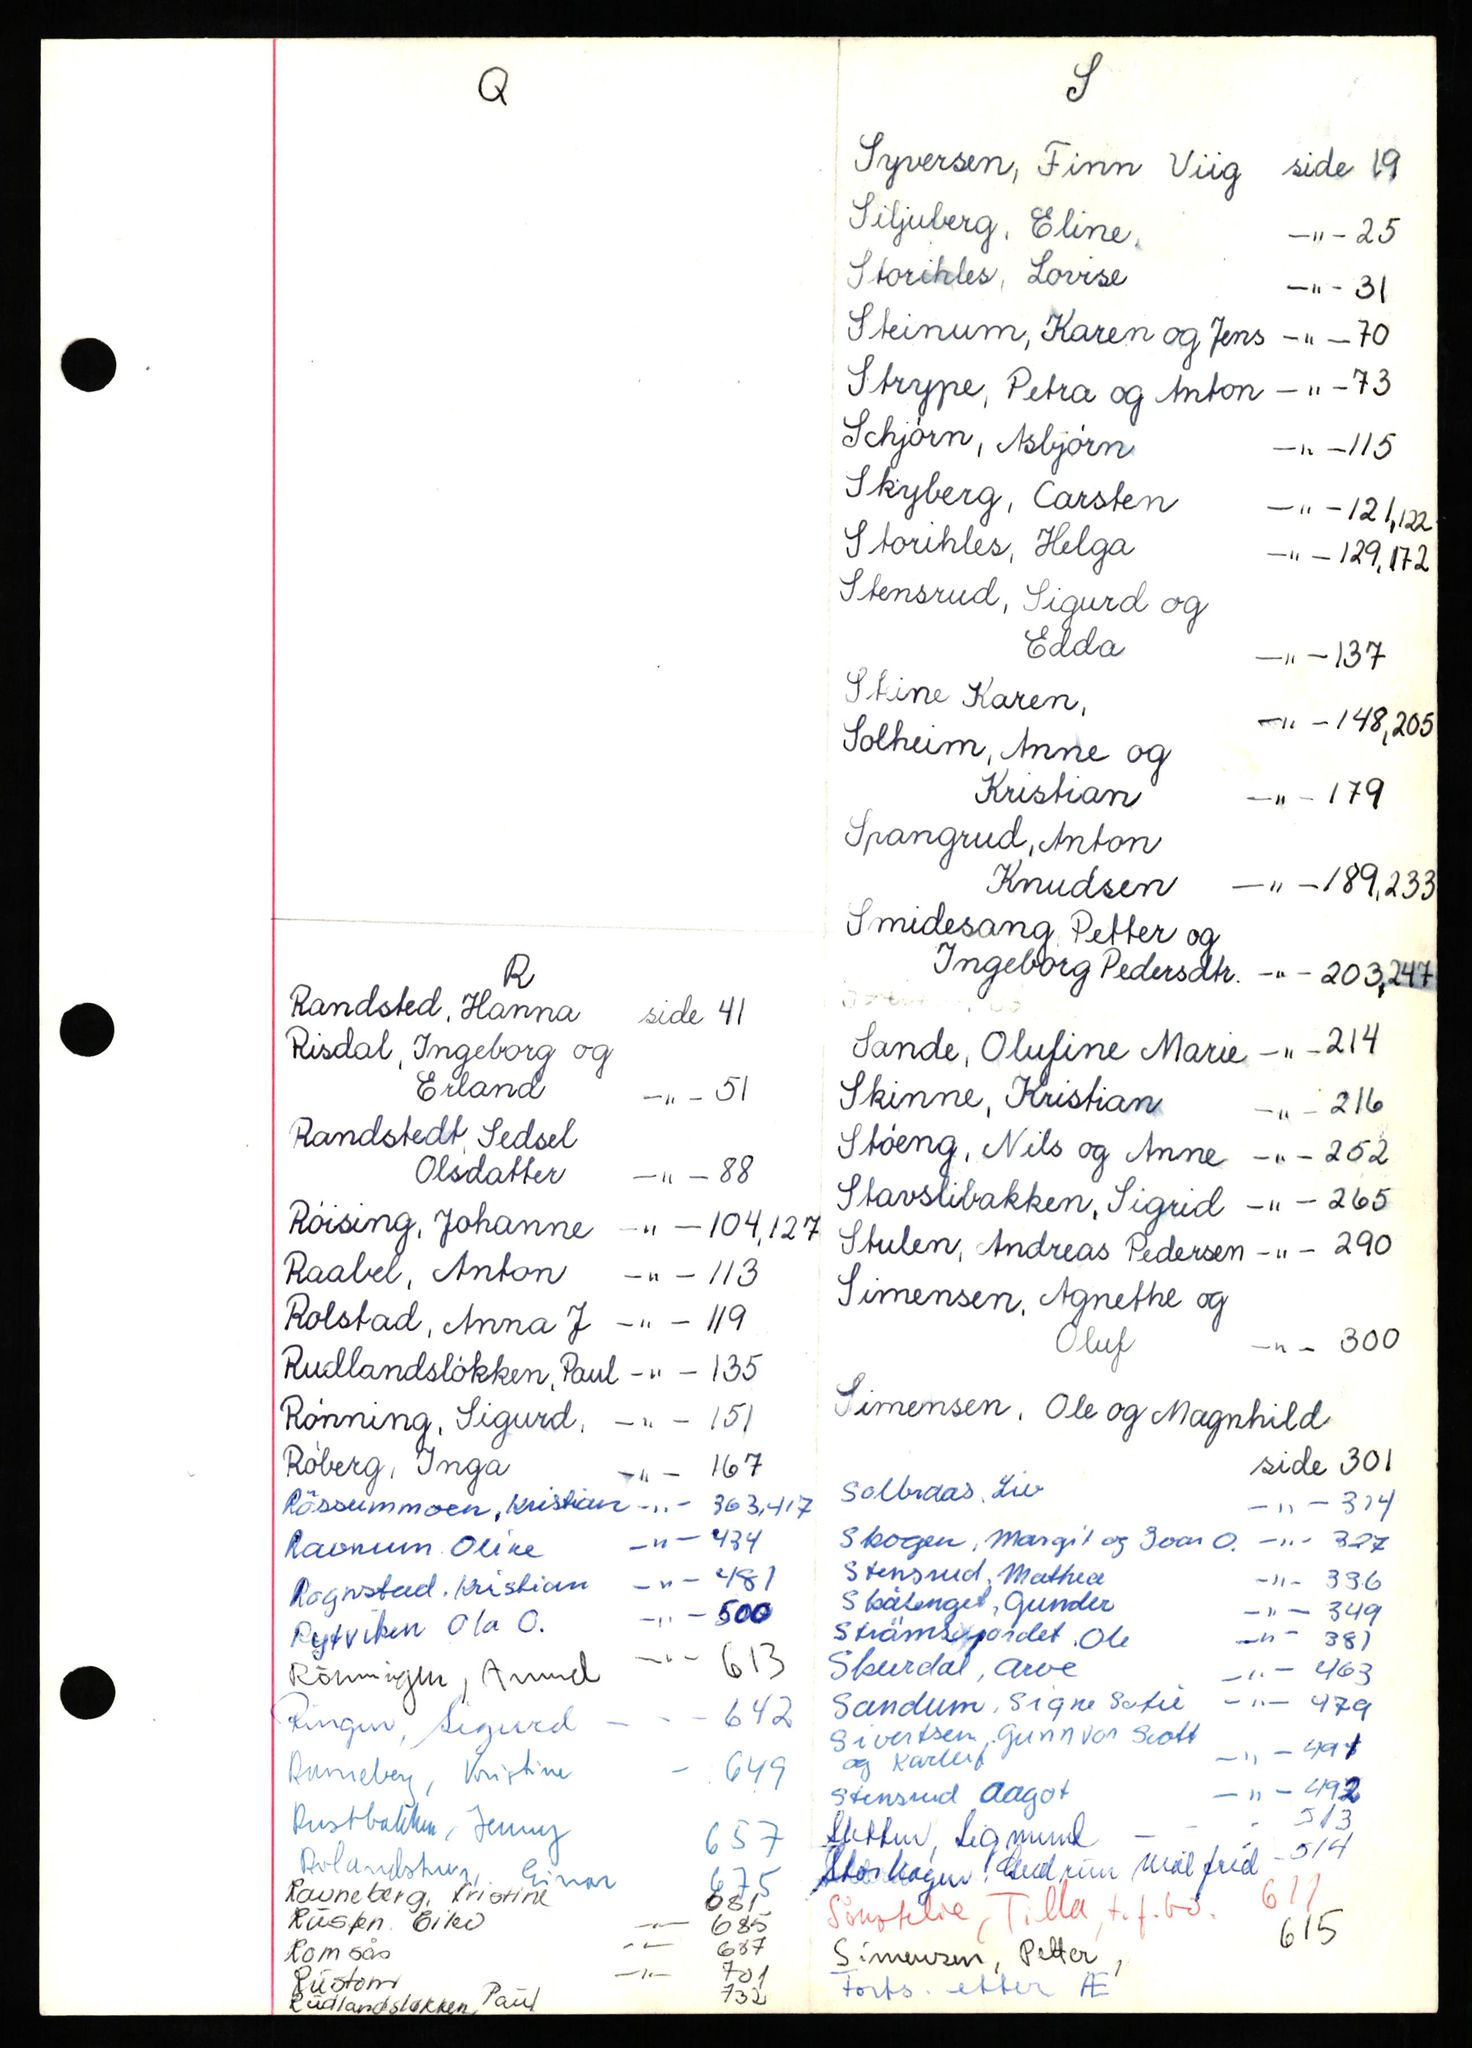 Q
R
Randsted, Hanna side 41
Risdal, Ingeborg og
Erland —"— 51
Randstedt, Sedsel
Olsdatter —"— 88
Róising, Johanne —"— 104,127
Raabel, Anton —"— 113
Rolstad, Anna J —"— 119
Rudlandslókken, Paul —"— 135
Rónning, Sigurd, —"— 151
Róberg, Inga —"— 167
Rössummoen, Kristian —"— 363,417
Ravnum Oline —"— 434
Rognstad. Kristian —"— 481
Rytviken Ola O. —"— 500
Rönningen, Amund —"— 613
Ringen, Sigurd — - - 642
Ranneberg, Kristine - 649
Rustbakken, Jenny 657
Rolandstun, Einar 675
Ravneberg, Kristine 681
Rusten Eiko —"— 685
Romsås —"— 687
Rustom —"— 701
Rudlandsløkken, Paul 732
S
Syversen, Finn Viig side 19
Siljuberg, Eline, —"— 25
Storihles, Lovise —"— 31
Steinum, Karen og Jens —"— 70
Strype, Petra og Anton —"— 73
Schjórn, Asbjórn —"— 115
Skyberg, Carsten —"— 121,122
Storihles, Helga —"— 129,172
Stensrud, Sigurd og
Edda —"— 137
Stine Karen, —"— 148,205
Solheim, Anne og
Kristian —"— 179
Spangrud, Anton
Knudsen —"— 189,233
Smidesang, Petter og
Ingeborg Pedersdtr. —"— 203,247
Sande, Olufine Marie —"— 214
Skinne, Kristian —"— 216
Stóeng, Nils og Anne —"— 252
Stavslibakken, Sigrid —"— 265
Stulen, Andreas Pedersen —"— 290
Simensen, Agnethe og
Oluf —"— 300
Simensen, Ole og Magnhild
side 301
Solbraas, Liv —"— 314
Skogen, Margit og Ivar O. —"— 327
Stensrud, Mathea —"— 336
Skålenget, Gunder —"— 349
Strömsjordet, Ole —"— 381
Skurdal, Arve —"— 463
Sandum, Signe Sofie —"— 479
Sivertsen, Gunnvor Scott
og Karleif —"— 491
Stensrud Aagot —"— 492
Sletten, Sigmund — - - 513
Storhagen, Gudrun Målfrid - 514
Tilla, t.f.bo. 611
Simensen, Petter, 615
Forts. etter Æ